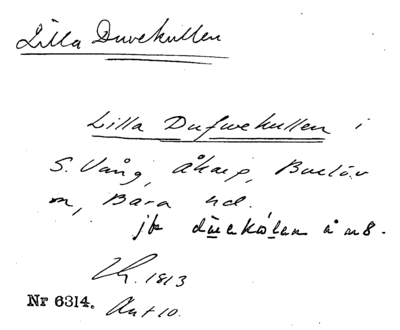 Lilla Duvekullen
Lilla Dufwekullen i
S. Vång, Åkarp, Burlöv
sn, Bara hd.
jfr duekolen å n8.
Lh. 1813
Nr 6314. Akt 10.